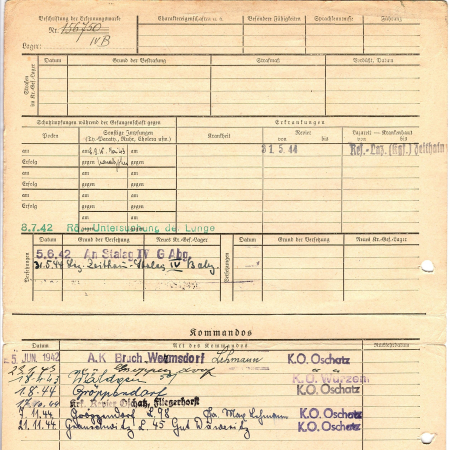 Beschriftung der Erkennungsmarke
Nr. 156750
IV B
Lager:
Charaktereigenschaften
Besondere Fähigkeiten
Sprachkenntnisse
Führung
Strafen im Kr.-Gef.-Lager
Datum
Grund der Bestrafung
Strafmaß
Verbüßt, Datum
Schutzimpfungen während der Gefangenschaft gegen
Erkrankungen
Pocken
Sonstige Impfungen
(Ty.-Paraty., Ruhr, Cholera usw.)
Krankheit
Revier
von bis
Lazarett — Krankenhaus
von bis
am am am
Erfolg gegen gegen
am am am
Erfolg gegen gegen
am am am
Erfolg gegen gegen
31.5.44 Res.-Laz. (Kgf.) Zeithain
8.7.42 Rö.-Untersuchung der Lunge
Versetzungen
Datum Grund der Versetzung Neues Kr.-Gef.-Lager
Datum Grund der Versetzung Neues Kr.-Gef.-Lager
5.6.42 An Stalag IV G Abg.
31.5.44 Laz. Zeithain Stalag IV B
Kommandos
Datum Art des Kommandos Rückkehrdatum
5. JUN. 1942 A.K. Bruch Wermsdorf Lehmann K.O. Oschatz
18.4.43 K.O. Wurzen
1.8.44 Gröppendorf K.O. Oschatz
Oschatz, Fliegerhorst
9.11.44 Gröppendorf L 98 Fa. Max Lehmann K.O. Oschatz
21.11.44 L. 45 Gut K.O. Oschatz